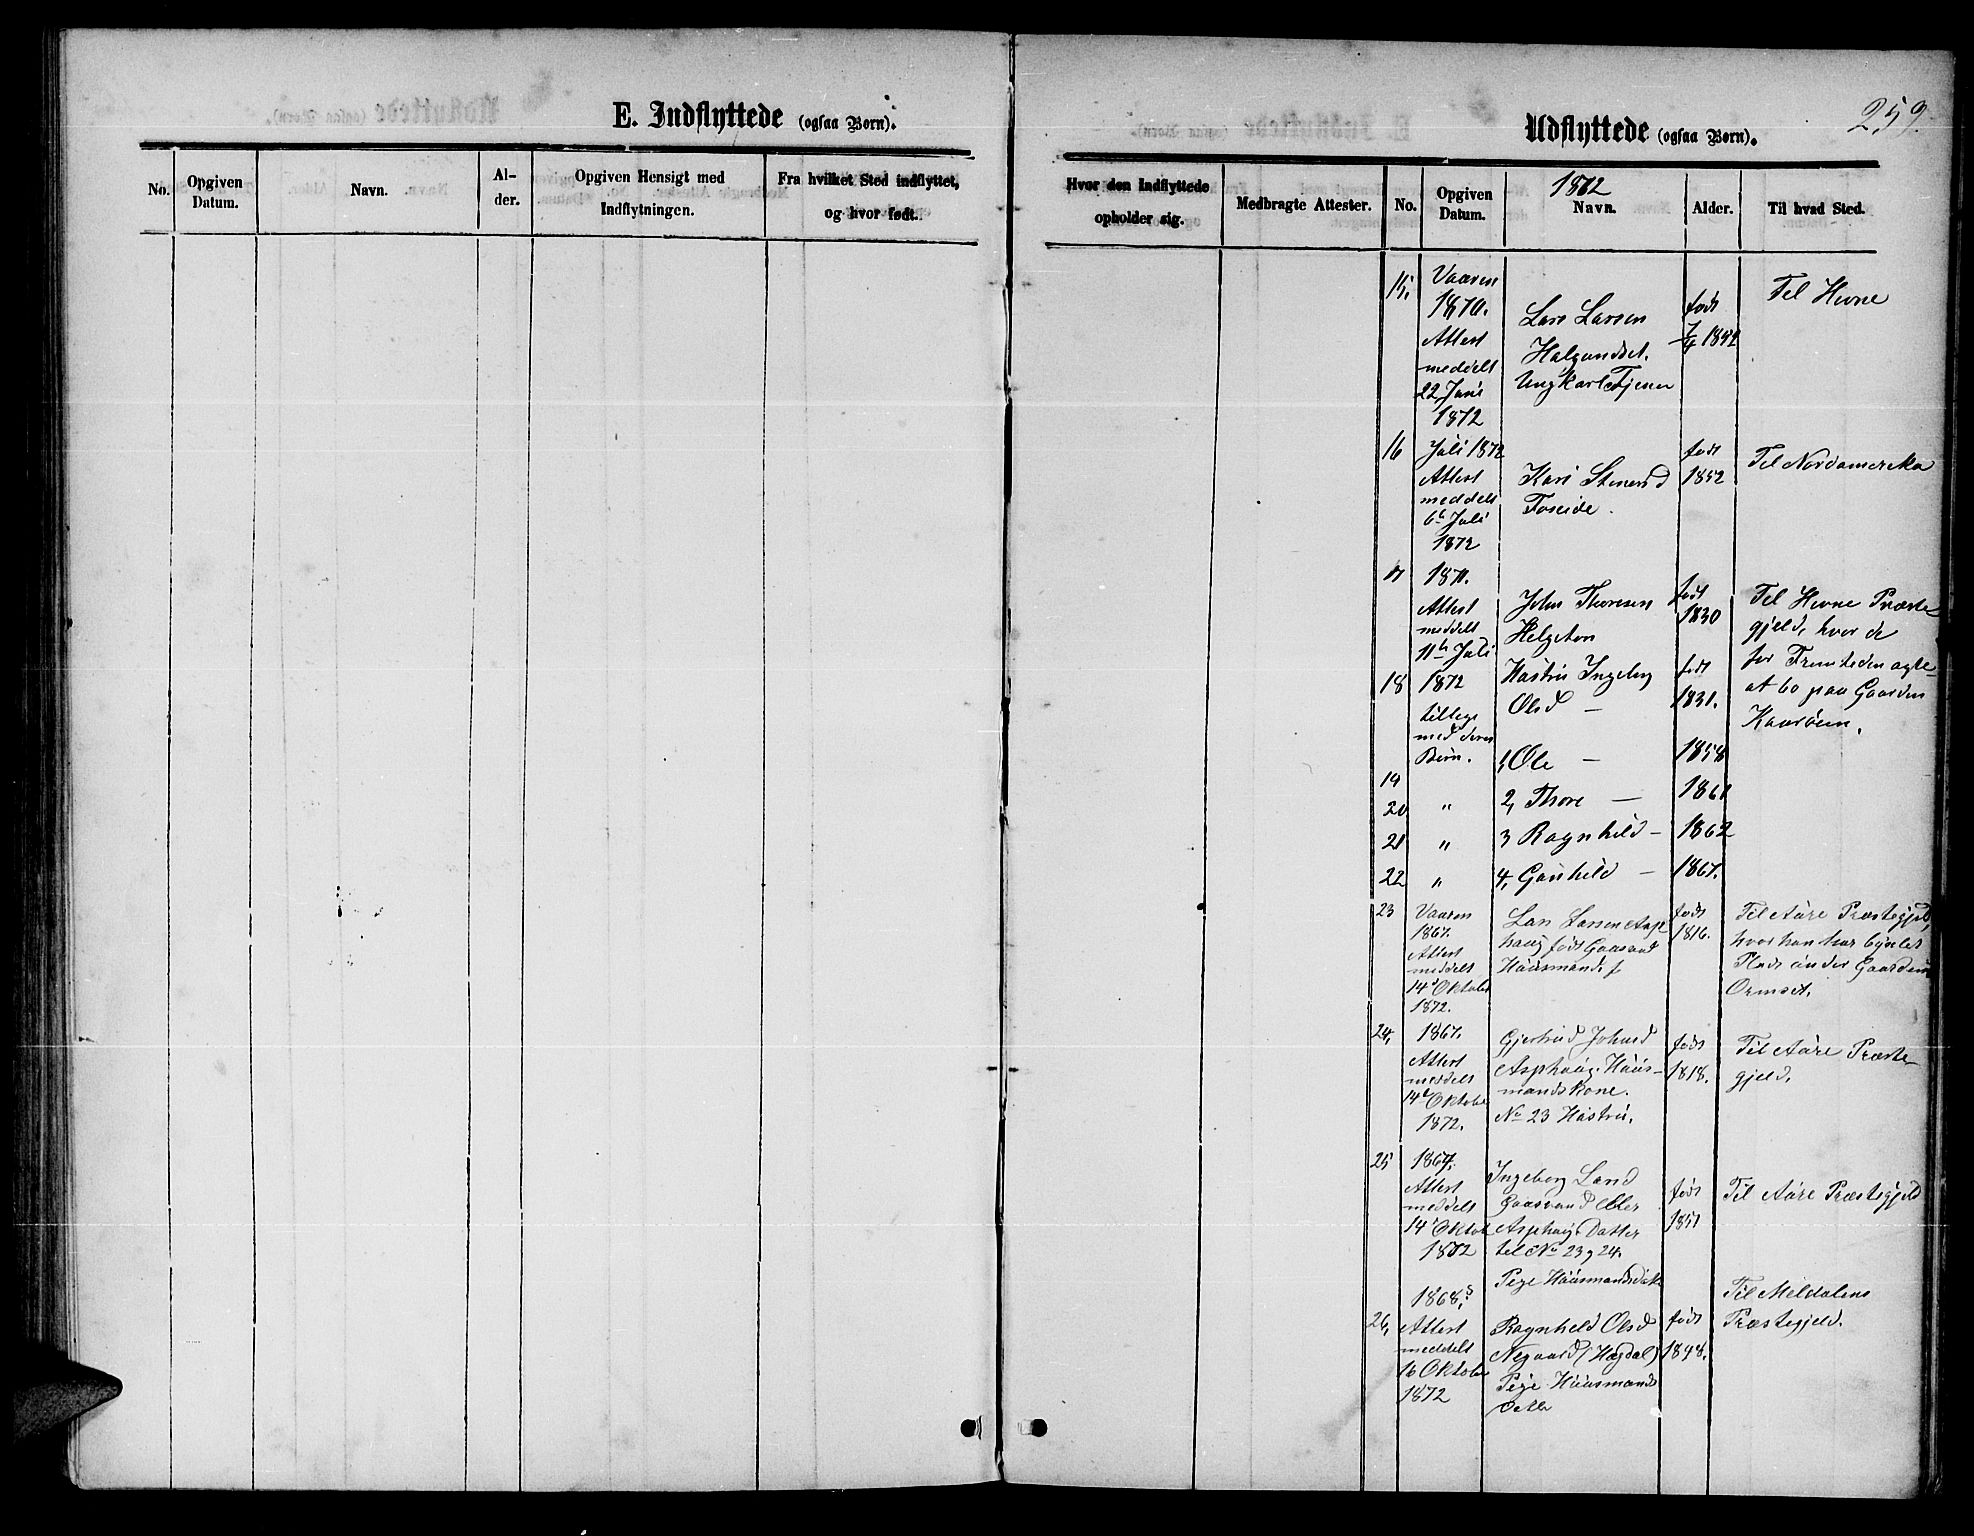 E. Indflyttede (ogsaa Børn).
No.
Opgiven Datum.
Navn.
Al-
der.
Opgiven Hensigt med
Indflytningen.
Fra hvilket Sted indflyttet,
og hvor født.
Udflyttede (ogsaa Børn).
259.
Hvor den Indflyttede
opholder sig.
Medbragte Attester.
No.
Opgiven
Datum.
1872
Navn.
Alder.
Til hvad Sted.
15, Vaaren
1870.
Attest
meddelt
22 Juni
1872
Lars Larsen
Halgundset.
Ungkarl Tjener
født
7/4 1852
Til Hevne
16 Juli 1872
Attest
meddelt
6te Juli
1872
Kari Stenersd
Foseide.
født
1852
Til Nordamerika
17 1871.
Attest
meddelt
11te Juli
1872
John Thoresen
Helgeton
født
1830
Til Hevne Præste-
gjeld, hvor de
for Fremtiden agte
at bo paa Gaarden
18
tillige
med deres
Børn.
Hustru Ingebrg
Olsd —
født
1831.
19 1, Ole — 1858
20 " 2, Thore — 1861
21 " 3 Ragnhild — 1862
22 " 4, Gunhild — 1867.
23 Vaaren
1867.
Attest
meddelt
14d Oktober
1872.
Lars Larsen Asp
haug født Gaasvand
Huusmand
født
1816.
Til Aure Præstegjeld,
hvor han har byslet
Plads under Gaarden
Ormset.
24, 1867.
Attest
meddelt
14d Oktober
1872.
Gjertrud Johnsd
Asphaug. Huus-
mandskone.
No 23 Hustru.
født
1818.
Til Aure Præste-
gjeld.
25 1864.
Attest
meddelt
14d Oktob
1872
Ingeborg Larsd
Gaasvand eller
Asphaug. Datter
til No 23 og 24.
Pige Huusmandsdatt
født
1851
Til Aure Præstegjeld
26, 1868,
Attest
meddelt
16 Oktober
1872
Ragnhild Olsd
Negaard (Hægdal)
Pige Huusmands
Datter
født
1848.
Til Meldalens
Præstegjeld.